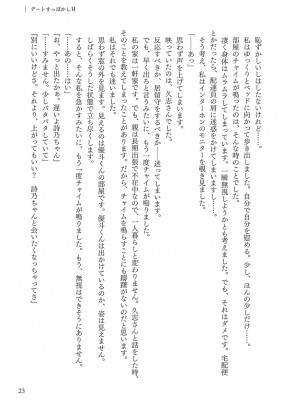 デートすっぽかしH
恥ずかしいはしたないけれど……。
私はゆっくりとベッドに向かって歩き出しました。自分で自分を慰める。少し、ほんの少しだけ……。
部屋のチャイムが鳴ったのは、そんな時のことでした。
凄く体はムラムラしています。一瞬無視しようかとも考えました。でも、それはダメです。宅配便
なら、配達員の肩に迷惑をかけてしまいますし……。
そう考え、私はインターホンのモニターを覗き見ました。
「――あっ」
思わず声を上げてしまいます。
映っていたのは、久志さんでした。
反応すべきか、居留守をするべきか――迷ってしまいます。
でも、早く出ろと言うみたいに、もう一度チャイムが鳴りました。
私の家は一軒家です。でも、親は長期出張で不在中なので、一人暮らしと変わりません。久志さんと話をした時、
そのことを教えてしまったことがあります。だから、チャイムを鳴らすことにも躊躇がないのだと思います。
それでも迷って、私は――
思わず窓の外を見ます。見えるのは優斗くんの部屋です。優斗くんは出かけているのか、姿は見えません。
しばらくそうした状態で立ち尽くします。
すると、そんな私を急かすみたいに、もう一度チャイムが鳴りました。もう、無視はできそうにありません。
「……はい」
「お……やっと出たか。遅いよ詩乃ちゃん」
「……すみません。少しバタバタしていて」
「別にいいけどさ。それより、上がってもいい？　詩乃ちゃんと会いたくなっちゃってさ」
23